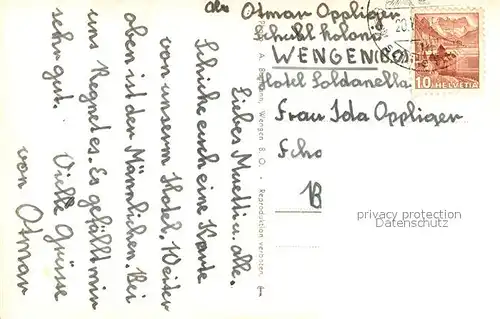 abs Otmar Oppliger
Schuhl. Kolonie
WENGEN (BO)
Hotel Soldanella
Frau Ida Oppliger
B
10 HELVETIA
Liebes Muetti u. alle.
Schicke euch eine Karte
von unserm Hotel. Weiter
oben ist der Männlichen. Bei
uns Regnet es. Es gefällt mir
sehr gut. Viele Grüsse
von Otmar
Wengen B. O. - Reproduktion verboten.
privacy protection
Datenschutz